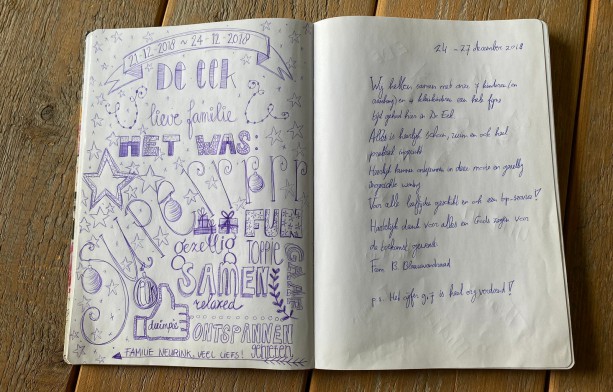 21-12-2018 ~ 24-12-2018
DE EEK
lieve familie
HET WAS:
Superrrrrr
FUN
gezellig
TOPPIE
GAAF
SAMEN
relaxed
duimpie
ONTSPANNEN
genieten
FAMILIE NEURINK, VEEL LIEFS!
24 - 27 december 2018
Wij hebben samen met onze 7 kinderen (en
aanhang) en kleinkinderen een hele fijne
tijd gehad hier in De Eek.
Alles is heerlijk schoon, ruim en ook heel
praktisch ingericht
Heerlijk kunnen ontspannen in deze mooie en gezellig
ingerichte woning
Van alle leeftijden geschikt en ook een top-service!
Hartelijk dank voor alles en Gods zegen voor
de toekomst gewenst.
Fam B.
p.s. Het cijfer is heel erg verdiend!